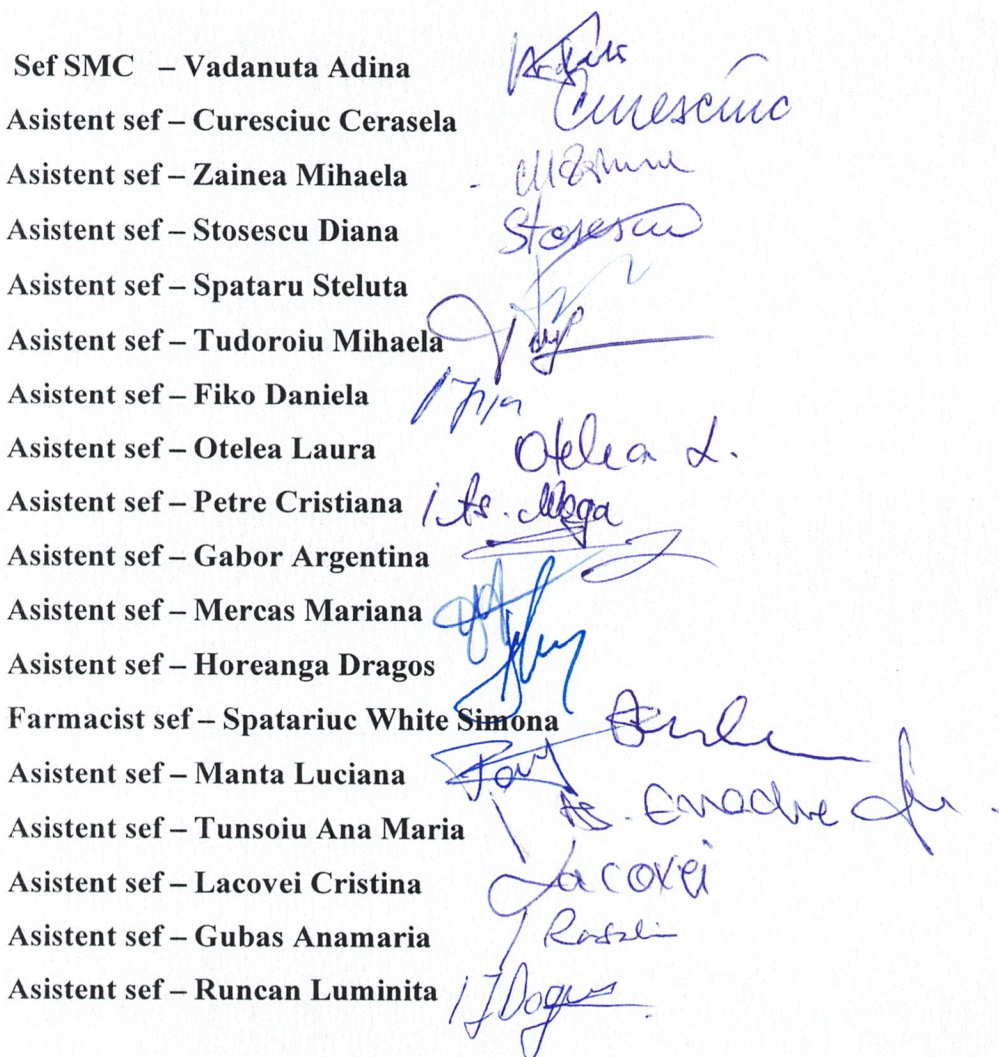 Sef SMC – Vadanuta Adina
Asistent sef – Curesciuc Cerasela Curesciuc
Asistent sef – Zainea Mihaela
Asistent sef – Stosescu Diana Stosescu
Asistent sef – Spataru Steluta
Asistent sef – Tudoroiu Mihaela
Asistent sef – Fiko Daniela
Asistent sef – Otelea Laura Otelea L.
Asistent sef – Petre Cristiana / As. Moga
Asistent sef – Gabor Argentina
Asistent sef – Mercas Mariana
Asistent sef – Horeanga Dragos
Farmacist sef – Spatariuc White Simona
Asistent sef – Manta Luciana
Asistent sef – Tunsoiu Ana Maria As. Enache
Asistent sef – Lacovei Cristina Lacovei
Asistent sef – Gubas Anamaria
Asistent sef – Runcan Luminita